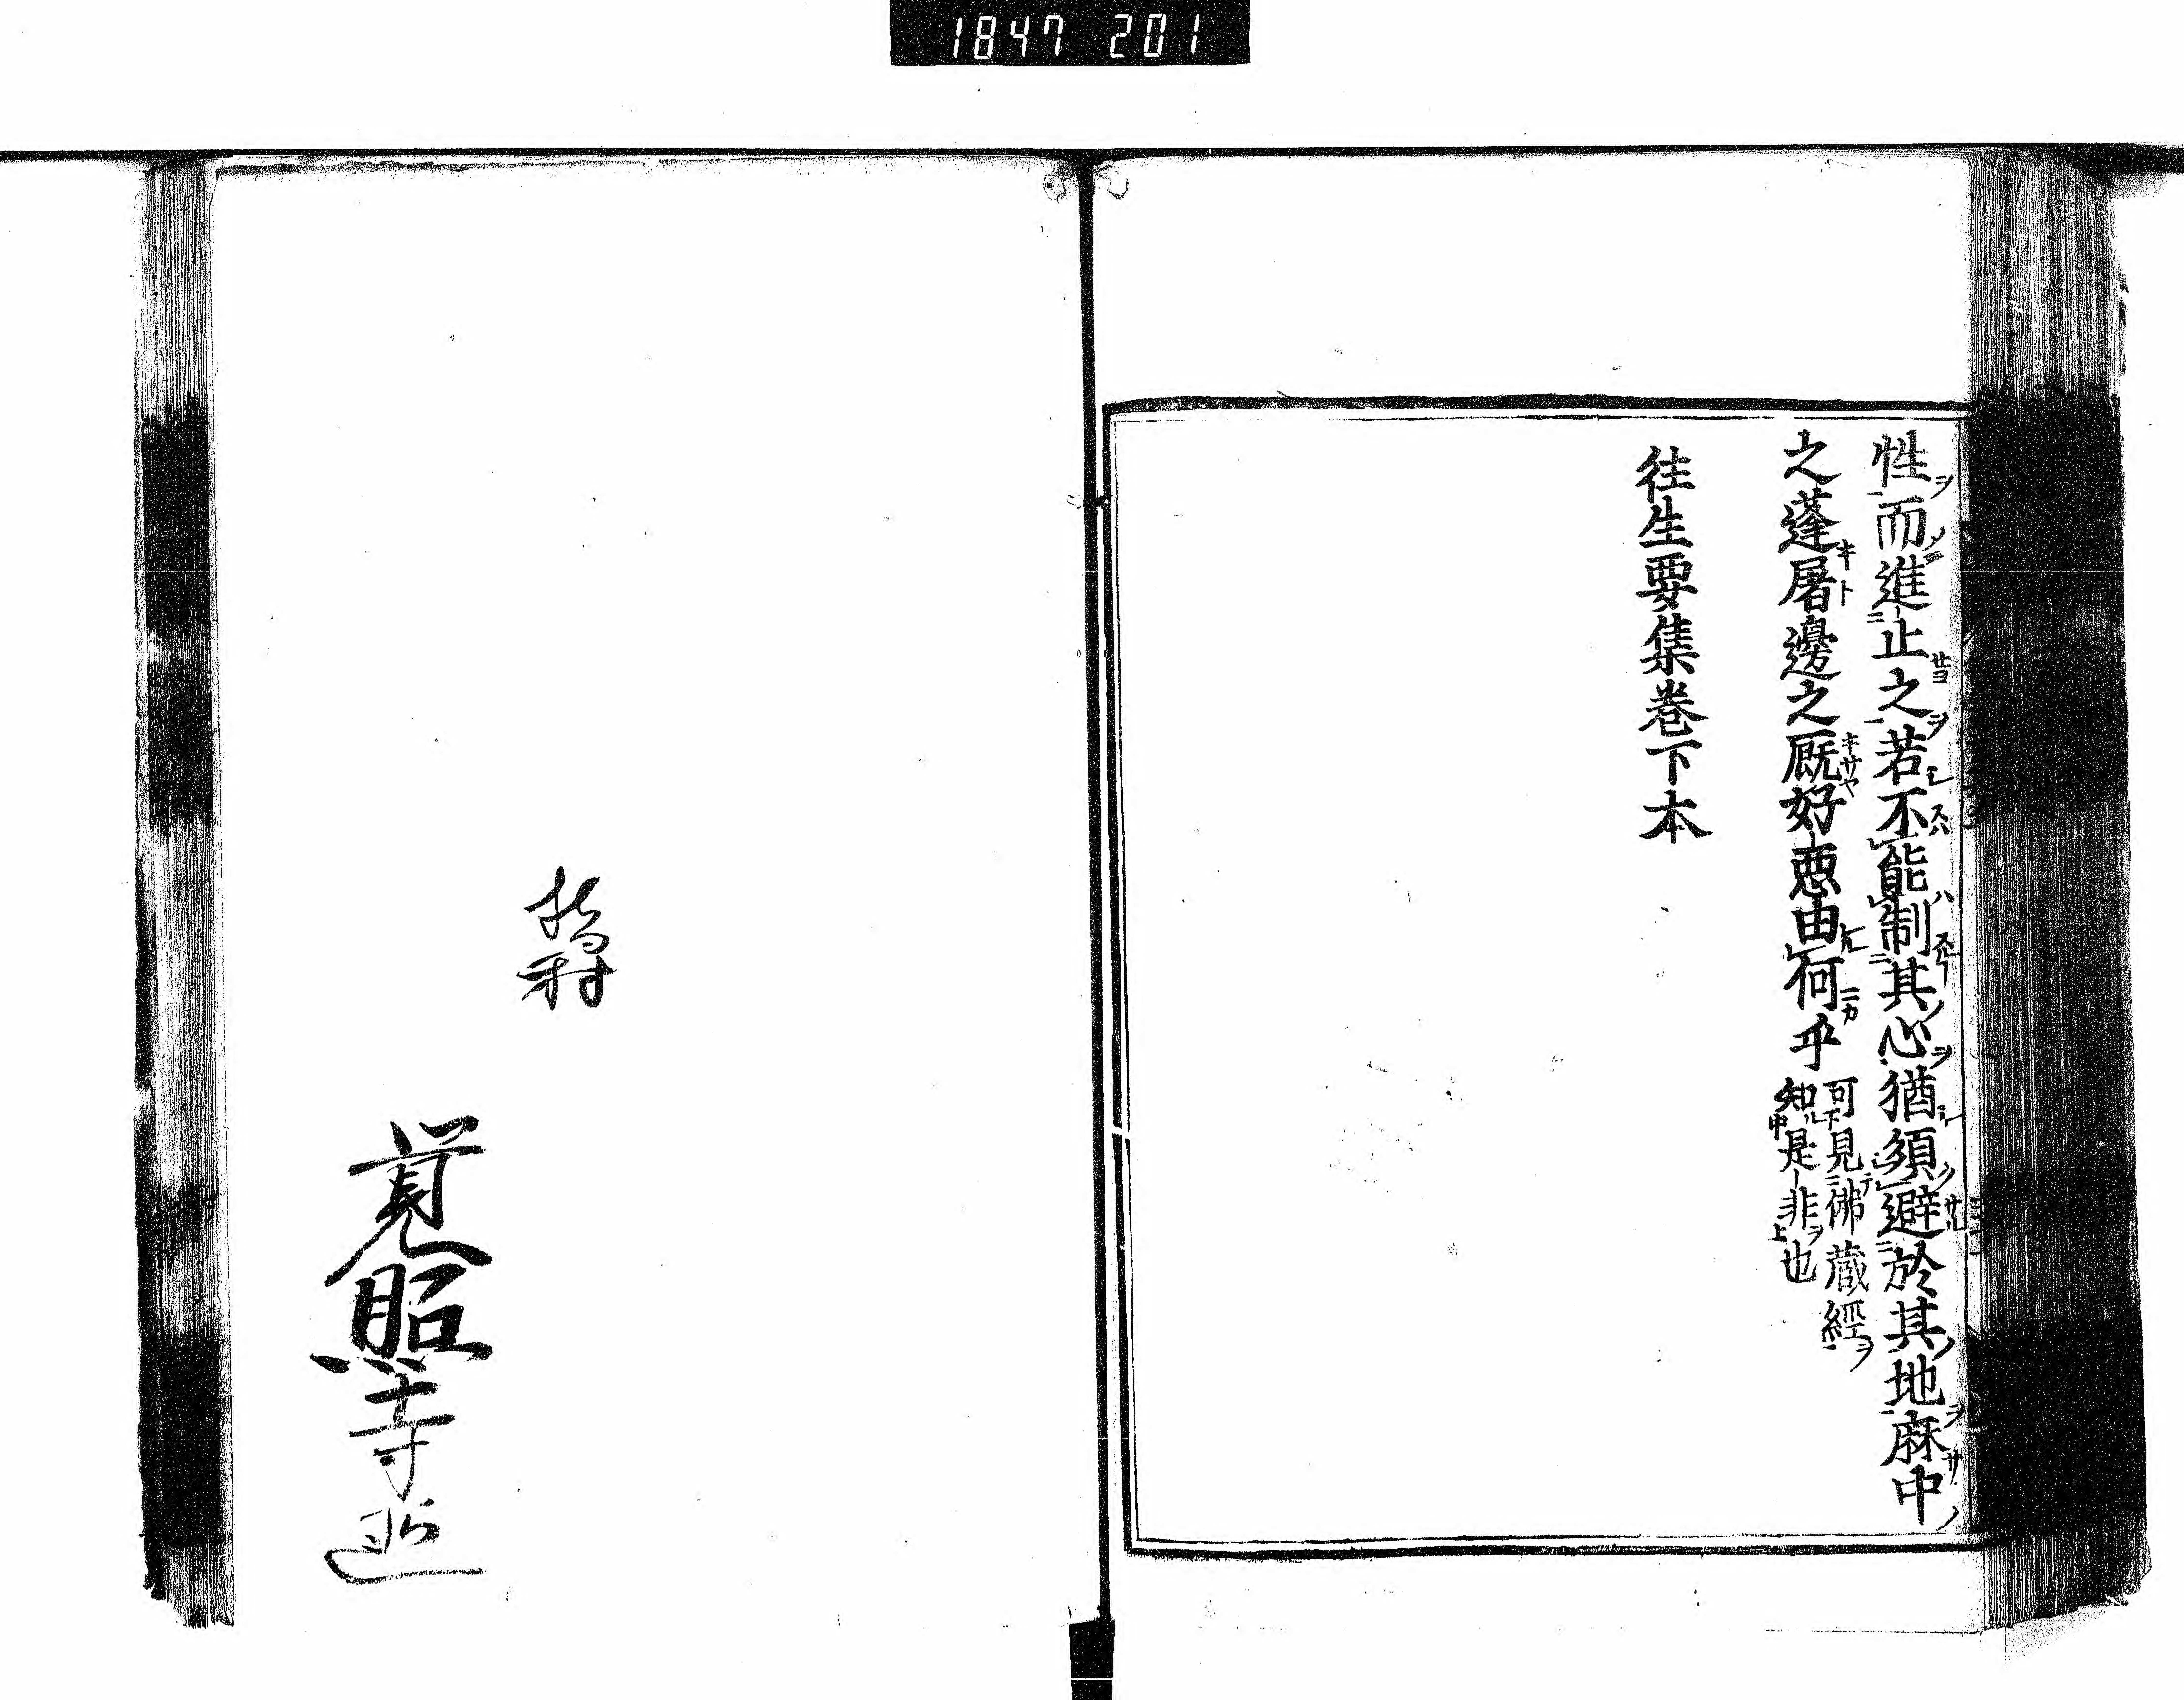 1847 201
性而進止之若不能制其心猶須避於其地麻中
之蓬屠邊之厩好惡由何乎
可見佛蔵經
知是非也
往生要集巻下本
覚照寺